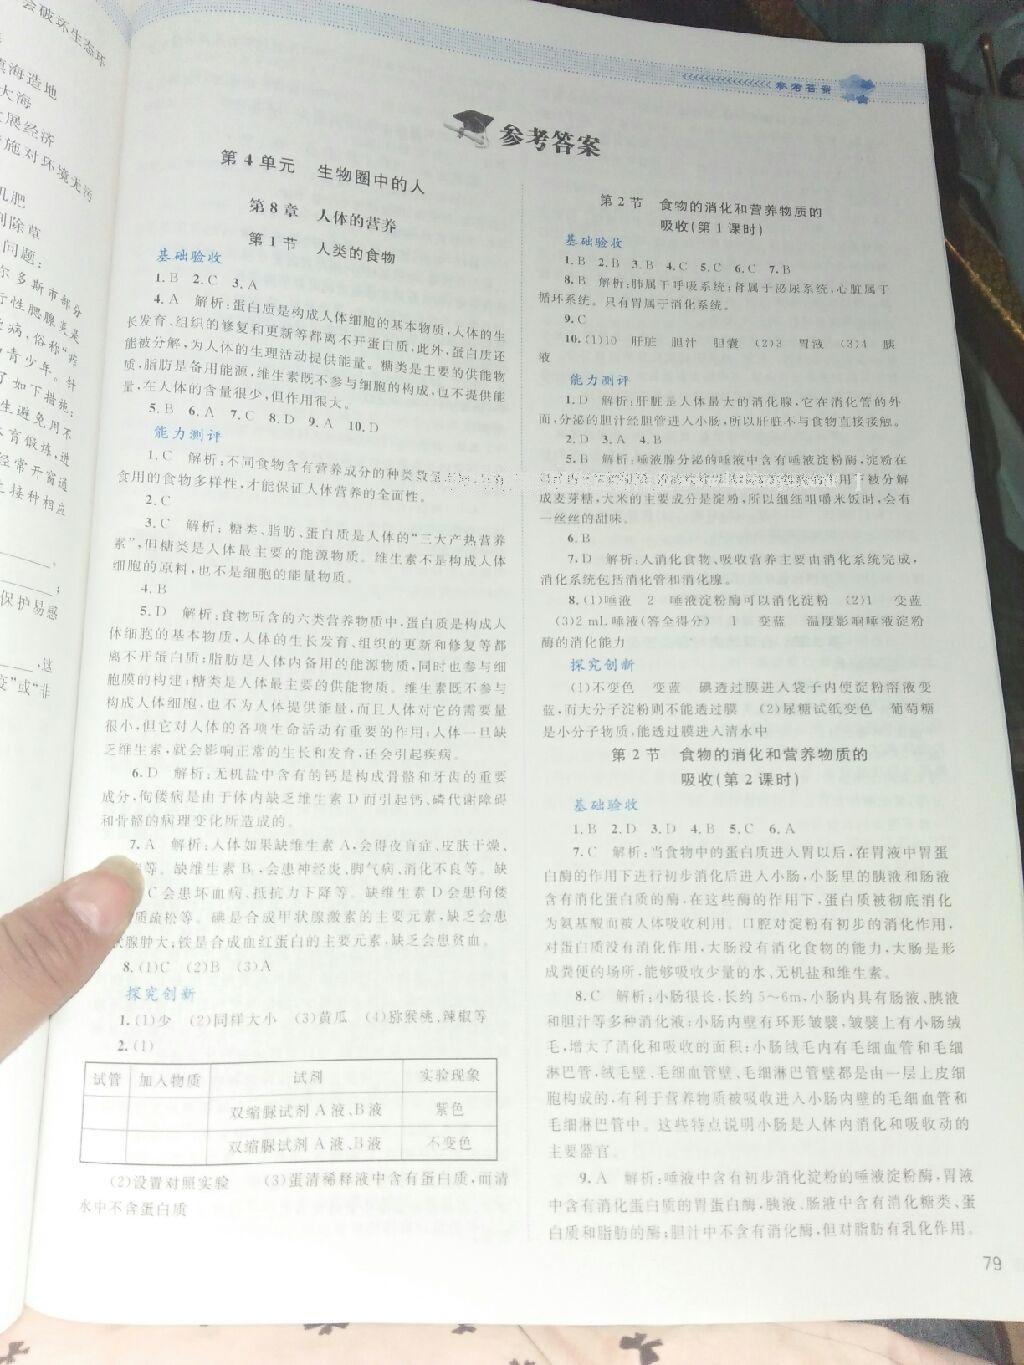 会破坏生态环
填海造地
大海
展经济
施对环境无污
几肥
刂除草
问题:
尔多斯市部分
行性腮腺炎是
病,俗称“痄
青少年。针
了如下措施:
生避免用不
育锻炼,进
经常开窗通
接种相应
保护易感
,这
变”或“非
参考答案
参考答案
第4单元 生物圈中的人
第8章 人体的营养
第1节 人类的食物
基础验收
1.B 2.C 3.A
4.A 解析:蛋白质是构成人体细胞的基本物质,人体的生
长发育、组织的修复和更新等都离不开蛋白质,此外,蛋白质还
能被分解,为人体的生理活动提供能量。糖类是主要的供能物
质,脂肪是备用能源,维生素既不参与细胞的构成,也不提供能
量,在人体的含量很少,但作用很大。
5.B 6.A 7.C 8.D 9.A 10.D
能力测评
1.C 解析:不同食物含有营养成分的种类数
食用的食物多样性,才能保证人体营养的全面性。
2.C
3.C 解析:糖类、脂肪、蛋白质是人体的“三大产热营养
素”,但糖类是人体最主要的能源物质。维生素不是构成人体
细胞的原料,也不是细胞的能量物质。
4.B
5.D 解析:食物所含的六类营养物质中,蛋白质是构成人
体细胞的基本物质,人体的生长发育、组织的更新和修复等都
离不开蛋白质;脂肪是人体内备用的能源物质,同时也参与细
胞膜的构建;糖类是人体最主要的供能物质。维生素既不参与
构成人体细胞,也不为人体提供能量,而且人体对它的需要量
很小,但它对人体的各项生命活动有重要的作用;人体一旦缺
乏维生素,就会影响正常的生长和发育,还会引起疾病。
6.D 解析:无机盐中含有的钙是构成骨骼和牙齿的重要
成分,佝偻病是由于体内缺乏维生素D而引起钙、磷代谢障碍
和骨骼的病理变化所造成的。
7.A 解析:人体如果缺维生素A,会得夜盲症、皮肤干燥、
等。缺维生素B₁会患神经炎、脚气病、消化不良等。缺
C会患坏血病、抵抗力下降等。缺维生素D会患佝偻
质疏松等。碘是合成甲状腺激素的主要元素,缺乏会患
状腺肿大;铁是合成血红蛋白的主要元素,缺乏会患贫血。
8.(1)C (2)B (3)A
探究创新
1.(1)少 (2)同样大小 (3)黄瓜 (4)猕猴桃、辣椒等
2.(1)
试管 加入物质 试剂 实验现象
双缩脲试剂A液、B液 紫色
双缩脲试剂A液、B液 不变色
(2)设置对照实验 (3)蛋清稀释液中含有蛋白质,而清
水中不含蛋白质
第2节 食物的消化和营养物质的
吸收(第1课时)
基础验收
1.B 2.B 3.B 4.C 5.C 6.C 7.B
8.B 解析:肺属于呼吸系统;肾属于泌尿系统,心脏属于
循环系统。只有胃属于消化系统。
9.C
10.(1)10 肝脏 胆汁 胆囊 (2)3 胃液 (3)4 胰
液
能力测评
1.D 解析:肝脏是人体最大的消化腺,它在消化管的外
面,分泌的胆汁经胆管进入小肠,所以肝脏不与食物直接接触。
2.D 3.A 4.B
5.B 解析:唾液腺分泌的唾液中含有唾液淀粉酶,淀粉在
用下被分解
成麦芽糖,大米的主要成分是淀粉,所以细细咀嚼米饭时,会有
一丝丝的甜味。
6.B
7.D 解析:人消化食物、吸收营养主要由消化系统完成,
消化系统包括消化管和消化腺。
8.(1)唾液 2 唾液淀粉酶可以消化淀粉 (2)1 变蓝
(3)2 mL唾液(答全得分) 1 变蓝 温度影响唾液淀粉
酶的消化能力
探究创新
(1)不变色 变蓝 碘透过膜进入袋子内使淀粉溶液变
蓝,而大分子淀粉则不能透过膜 (2)尿糖试纸变色 葡萄糖
是小分子物质,能透过膜进入清水中
第2节 食物的消化和营养物质的
吸收(第2课时)
基础验收
1.B 2.D 3.D 4.B 5.C 6.A
7.C 解析:当食物中的蛋白质进入胃以后,在胃液中胃蛋
白酶的作用下进行初步消化后进入小肠,小肠里的胰液和肠液
含有消化蛋白质的酶,在这些酶的作用下,蛋白质被彻底消化
为氨基酸而被人体吸收利用。口腔对淀粉有初步的消化作用,
对蛋白质没有消化作用,大肠没有消化食物的能力,大肠是形
成粪便的场所,能够吸收少量的水、无机盐和维生素。
8.C 解析:小肠很长,长约5~6m,小肠内具有肠液、胰液
和胆汁等多种消化液;小肠内壁有环形皱襞,皱襞上有小肠绒
毛,增大了消化和吸收的面积;小肠绒毛内有毛细血管和毛细
淋巴管,绒毛壁、毛细血管壁、毛细淋巴管壁都是由一层上皮细
胞构成的,有利于营养物质被吸收进入小肠内壁的毛细血管和
毛细淋巴管中。这些特点说明小肠是人体内消化和吸收动的
主要器官。
9.A 解析:唾液中含有初步消化淀粉的唾液淀粉酶,胃液
中含有消化蛋白质的胃蛋白酶,胰液、肠液中含有消化糖类、蛋
白质和脂肪的酶;胆汁中不含有消化酶,但对脂肪有乳化作用。
79